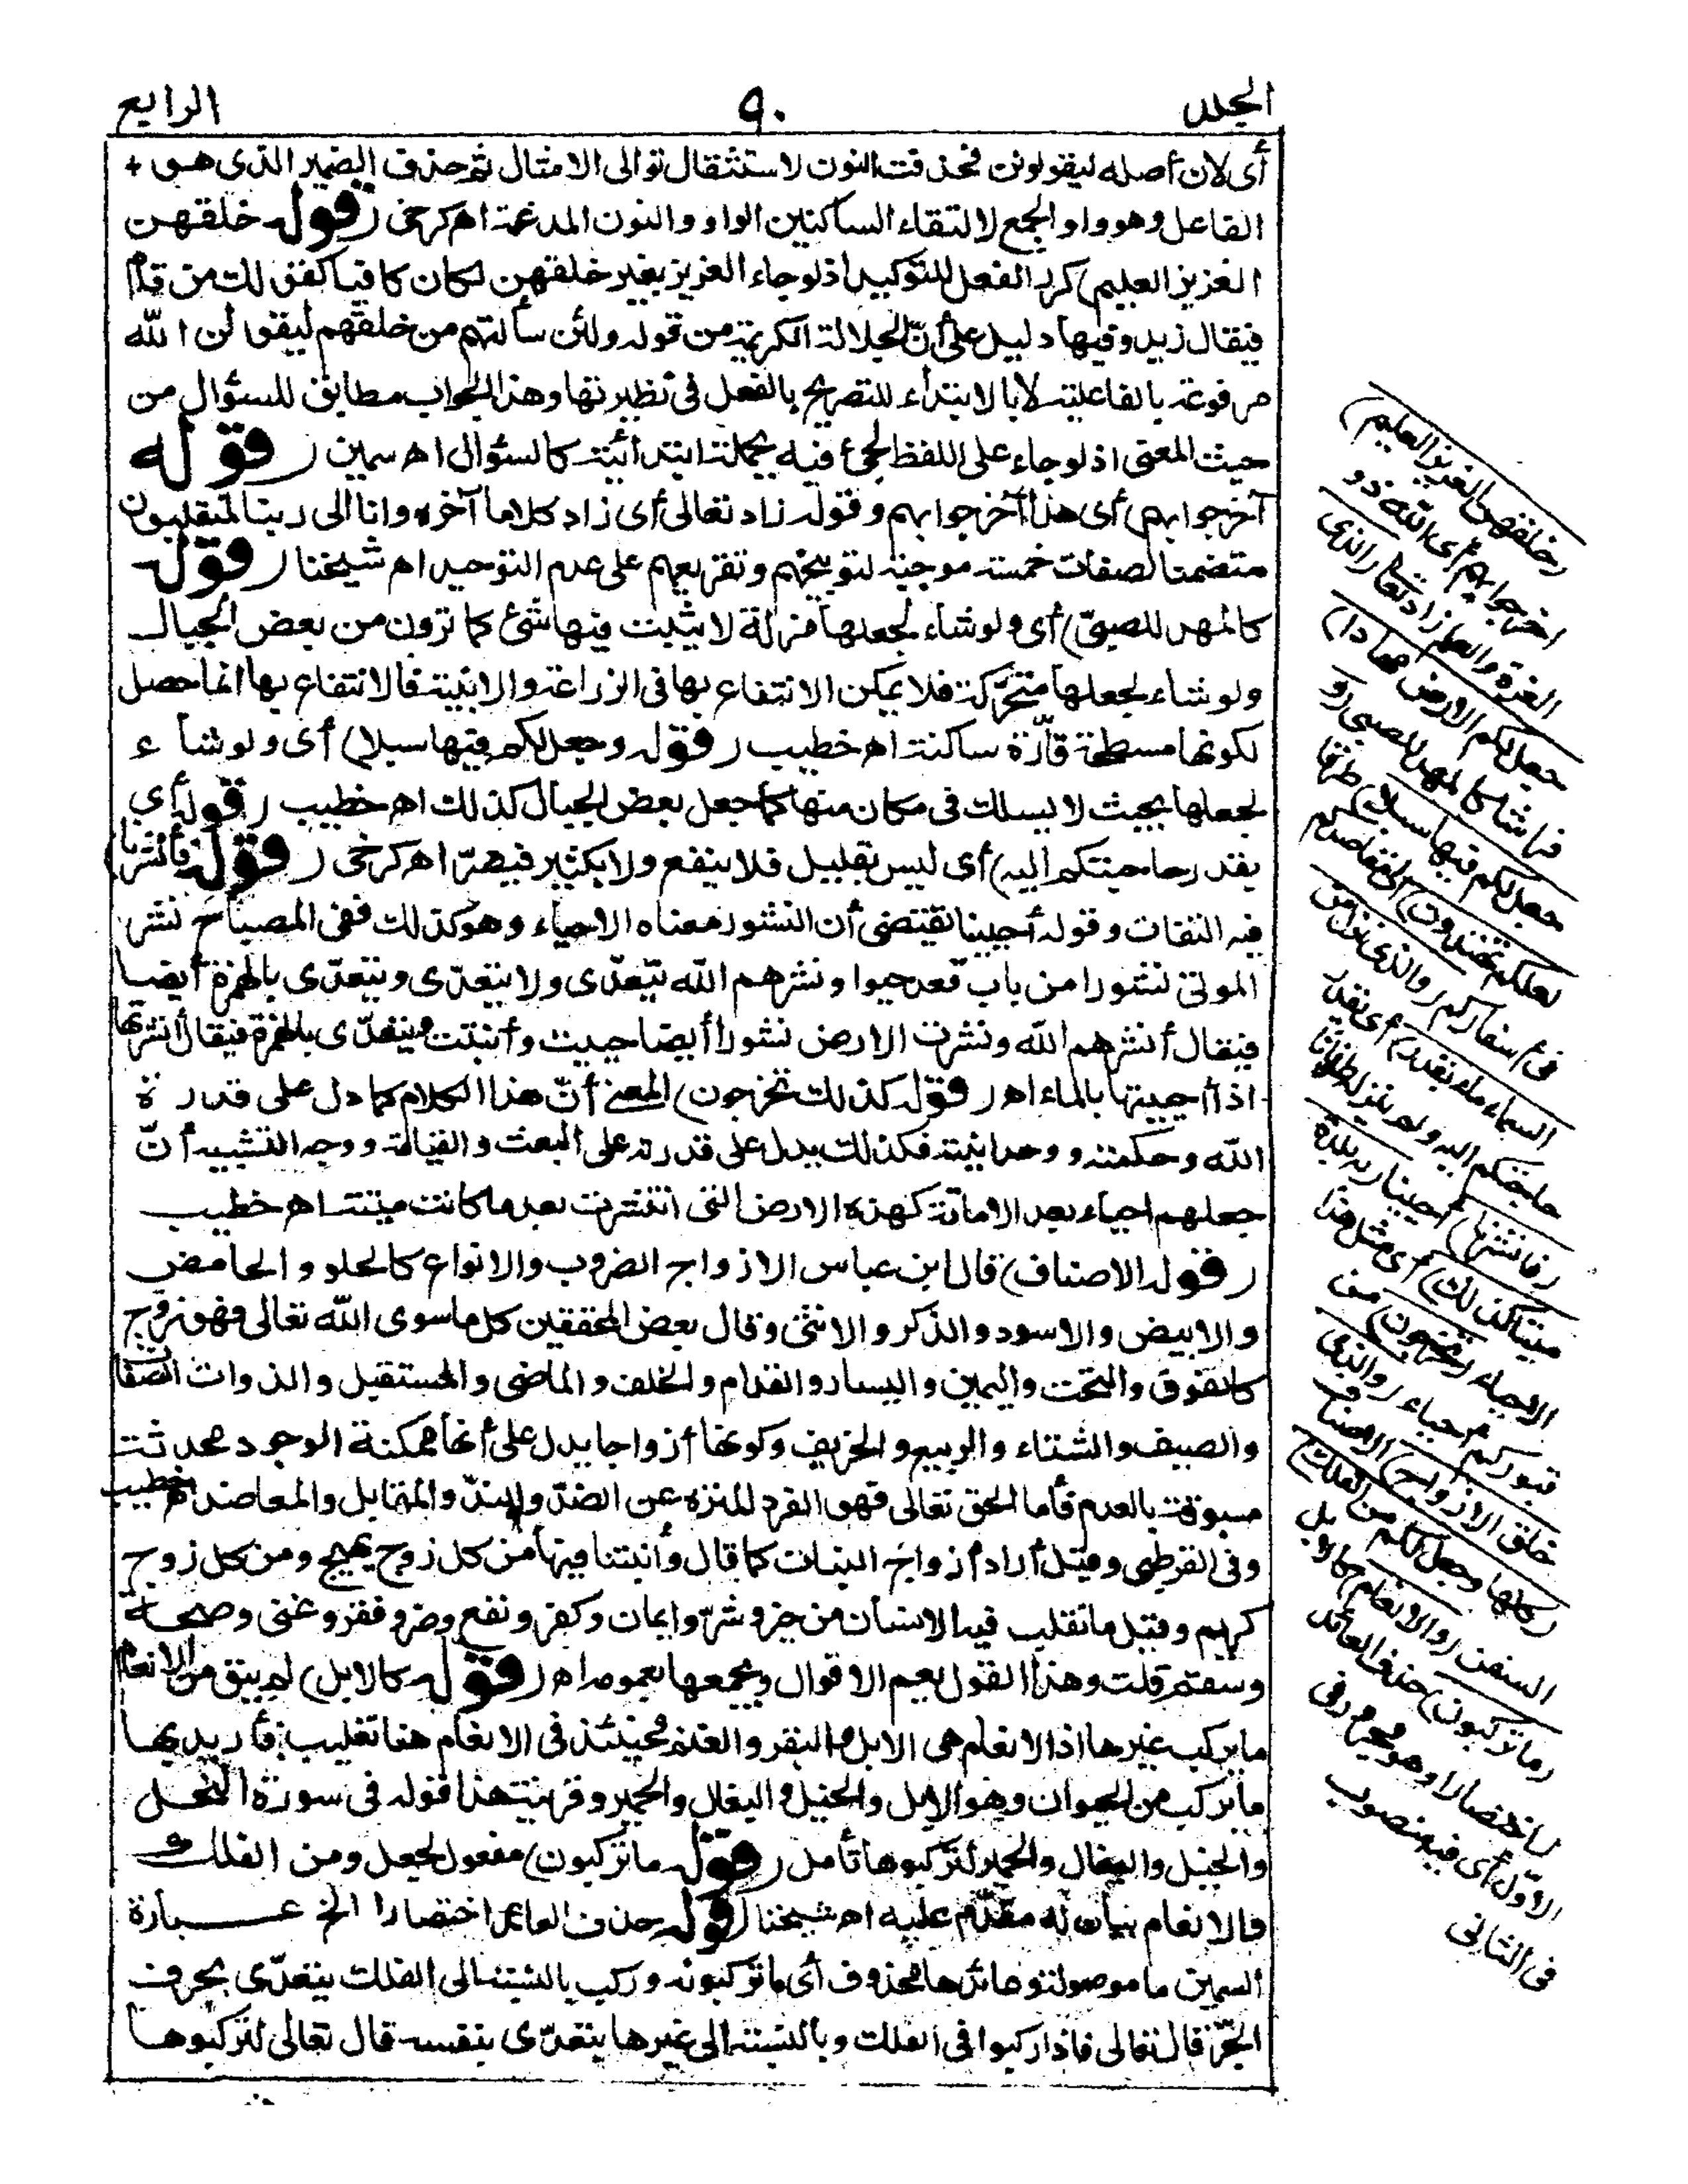 المجلد
٩٠
الرابع
أى لان أصله ليقولونن فحذفت النون لاستثقال توالى الامثال ثم حذف الضمير الذى هو
الفاعل وهو واو الجمع لالتقاء الساكنين الواو والنون المدغمة اهـ كرخى (قوله خلقهن
العزيز العليم) كرر الفعل للتوكيد اذ لو جاء العزيز بغير خلقهن لكان كافيا كقولك من قام
فيقال زيد وفيها دليل على أنّ الجلالة الكريمة من قوله ولئن سألتهم من خلقهم ليقولن الله
مرفوعة بالفاعلية لا بالابتداء للتصريح بالفعل فى نظيرتها وهذا الجواب مطابق للسؤال من
حيث المعنى اذ لو جاء على اللفظ لجئ فيه بجملة ابتدائية كالسؤال اهـ سمين (قوله
آخر جوابهم) أى هذا آخر جوابهم وقوله زاد تعالى أى زاد كلاما آخره وانا الى ربنا لمنقلبون
متضمنا لصفات خمسة موجبة لتوبيخهم وتقريعهم على عدم التوحيد اهـ شيخنا (قوله
كالمهد للصبىّ) أى ولو شاء لجعلها مزلة لا يثبت فيها شئ كما ترون من بعض الجبال
ولو شاء لجعلها متحرّكة فلا يمكن الانتفاع بها فى الزراعة والابنية فالانتفاع بها انما حصل
لكونها مسطحة قارّة ساكنة اهـ خطيب (قوله وجعل لكم فيها سبلا) أى ولو شاء
لجعلها بحيث لا يسلك فى مكان منها كما جعل بعض الجبال كذلك اهـ خطيب (قوله أى
بقدر حاجتكم اليه) أى ليس بقليل فلا ينفع ولا بكثير فيضرّ اهـ كرخى (قوله فأنشرنا)
فيه التفات وقوله أحيينا يقتضى أن النشور معناه الاحياء وهو كذلك ففى المصباح نشر
الموتى نشورا من باب قعد حيوا ونشرهم الله يتعدّى ولا يتعدّى ويتعدّى بالهمزة أيضا
فيقال أنشرهم الله ونشرت الارض نشورا أيضا حييت وأنبتت ويتعدّى بالهمزة فيقال أنشرتها
اذا أحييتها بالماء اهـ (قوله كذلك تخرجون) المعنى أنّ هذا الكلام كما دل على قدرة
الله وحكمته ووحدانيته فكذلك يدل على قدرته على البعث والقيامة ووجه التشبيه أنّ
جعلهم احياء بعد الاماتة كهذه الارض التى انتشرت بعد ما كانت ميتة اهـ خطيب
(قوله الاصناف) قال ابن عباس الازواج الضروب والانواع كالحلو والحامض
والابيض والاسود والذكر والانثى وقال بعض المحققين كل ما سوى الله تعالى فهو زوج
كالفوق والتحت واليمين واليسار والقدام والخلف والماضى والمستقبل والذوات والصفات
والصيف والشتاء والربيع والخريف وكونها أزواجا يدل على أنها ممكنة الوجود محدثة
مسبوقة بالعدم فأما الحق تعالى فهو الفرد المنزه عن الضدّ والندّ والمقابل والمعاضد اهـ خطيب
وفى القرطبى وقيل أراد أزواج النبات كما قال وأنبتنا فيها من كل زوج بهيج ومن كل زوج
كريم وقيل ما يتقلب فيه الانسان من خير وشرّ وايمان وكفر ونفع وضر وفقر وغنى وصحة
وسقم قلت وهذا القول يعم الاقوال ويجمعها بعمومه اهـ (قوله كالابل) لم يبق من الانعام
ما يركب غيرها اذ الانعام هى الابل والبقر والغنم فحينئذ فى الانعام هنا تغليب فأريد بها
ما يركب من الحيوان وهو الابل والخيل والبغال والحمير وقرينة هذا قوله فى سورة النحل
والخيل والبغال والحمير لتركبوها تأمل (قوله ما تركبون) مفعول لجعل ومن الفلك
والانعام بيان له مقدّم عليه اهـ شيخنا (قوله حذف العائد اختصارا الخ عبارة
السمين ما موصولة وعائدها محذوف أى ما تركبونه وركب بالنسبة الى الفلك يتعدّى بحرف
الجرّ قال تعالى فاذا ركبوا فى الفلك وبالنسبة الى غيرها يتعدّى بنفسه قال تعالى لتركبوها
(خلقهن العزيز العليم)
آخر جوابهم أى الله ذو
العزة والعلم زاد تعالى (الذى
جعل لكم الارض مهادا)
فراشا كالمهد للصبى (و
جعل لكم فيها سبلا) طرقا
(لعلكم تهتدون) الى مقاصدكم
فى أسفاركم (والذى نزل من
السماء ماء بقدر) أى بقدر
حاجتكم اليه ولم ينزله طوفانا
(فأنشرنا) أحيينا (به بلدة
ميتا كذلك) أى مثل هذا
الاحياء (تخرجون) من
قبوركم أحياء (والذى
خلق الازواج) الاصناف
(كلها وجعل لكم من الفلك)
السفن (والانعام) كالابل
(ما تركبون) حذف العائد
اختصارا وهو مجرور فى
الاوّل أى فيه منصوب
فى الثانى